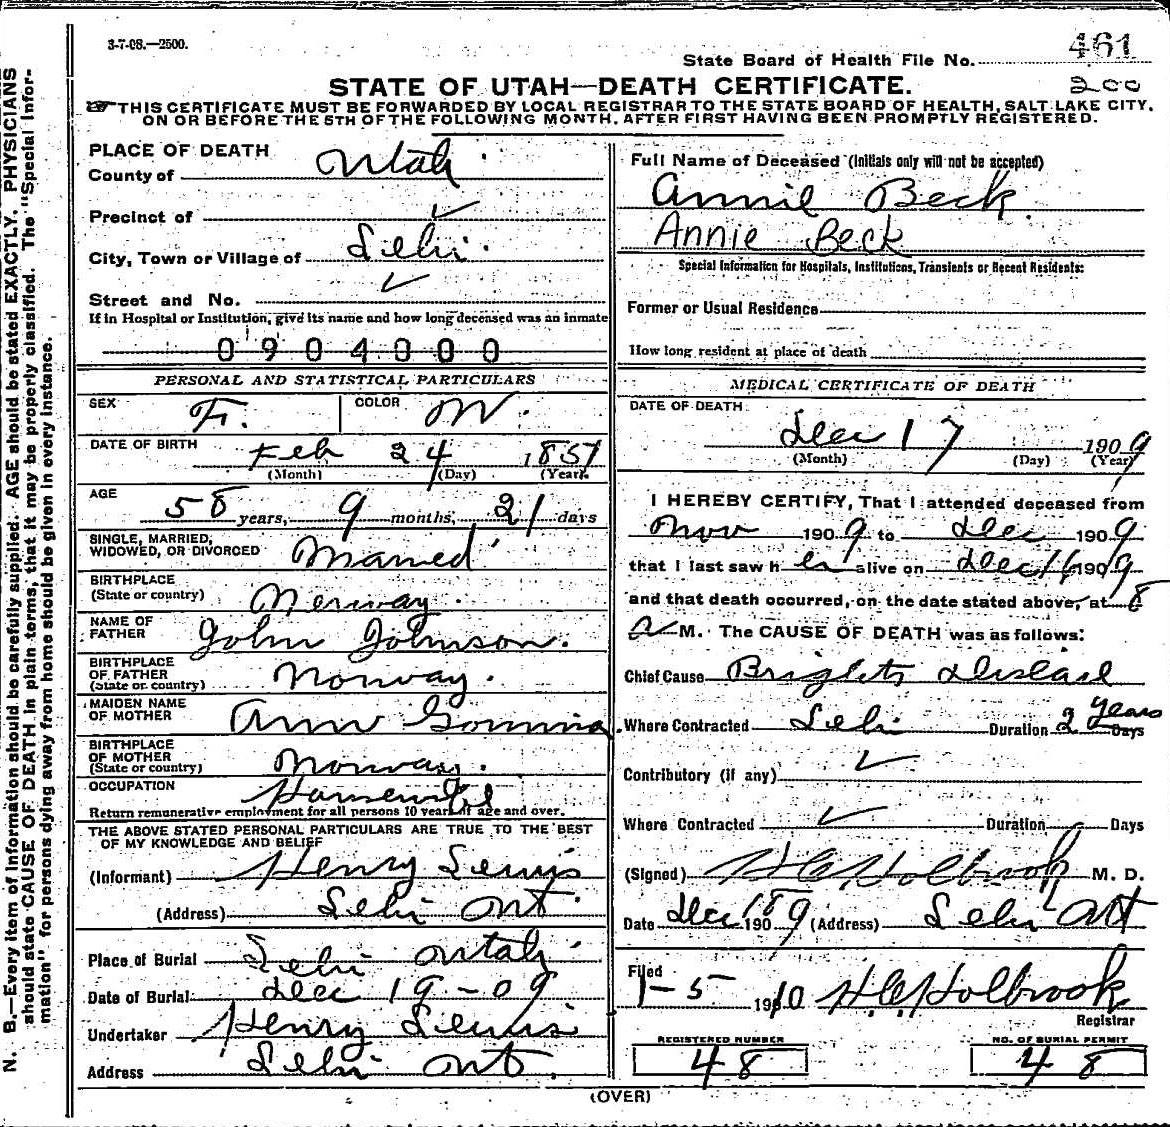 3-7-08.—2500.
461
State Board of Health File No.
STATE OF UTAH—DEATH CERTIFICATE.
200
THIS CERTIFICATE MUST BE FORWARDED BY LOCAL REGISTRAR TO THE STATE BOARD OF HEALTH, SALT LAKE CITY,
ON OR BEFORE THE 5TH OF THE FOLLOWING MONTH, AFTER FIRST HAVING BEEN PROMPTLY REGISTERED.
PLACE OF DEATH
County of Utah
Precinct of
City, Town or Village of Lehi
Street and No.
If in Hospital or Institution, give its name and how long deceased was an inmate
0904000
PERSONAL AND STATISTICAL PARTICULARS
SEX F. COLOR W.
DATE OF BIRTH Feb 24 1851
(Month) (Day) (Year)
AGE 58 years, 9 months, 21 days
SINGLE, MARRIED,
WIDOWED, OR DIVORCED Married
BIRTHPLACE
(State or country) Norway
NAME OF
FATHER John Johnson.
BIRTHPLACE
OF FATHER
(State or country) Norway.
MAIDEN NAME
OF MOTHER Ann
BIRTHPLACE
OF MOTHER
(State or country) Norway.
OCCUPATION Housewife
Return remunerative employment for all persons 10 years of age and over.
THE ABOVE STATED PERSONAL PARTICULARS ARE TRUE TO THE BEST
OF MY KNOWLEDGE AND BELIEF
(Informant) Henry Lewis
(Address) Lehi Ut.
Place of Burial Lehi Utah
Date of Burial Dec 19-09
Undertaker Henry Lewis
Address Lehi Ut.
Full Name of Deceased (Initials only will not be accepted)
Annie Beck
Annie Beck
Special Information for Hospitals, Institutions, Transients or Recent Residents:
Former or Usual Residence
How long resident at place of death
MEDICAL CERTIFICATE OF DEATH
DATE OF DEATH
Dec 17 1909
(Month) (Day) (Year)
I HEREBY CERTIFY, That I attended deceased from
Nov 1909 to Dec 1909
that I last saw her alive on Dec 16 1909
and that death occurred, on the date stated above, at 8
A M. The CAUSE OF DEATH was as follows:
Chief Cause Brights Disease
Where Contracted Lehi Duration 2 Years Days
Contributory (if any)
Where Contracted Duration Days
(Signed) H C Holbrook M. D.
Date Dec 18 1909 (Address) Lehi Ut
Filed
1-5 1910 H.C. Holbrook
Registrar
REGISTERED NUMBER
48
NO. OF BURIAL PERMIT
48
(OVER)
N. B.—Every item of information should be carefully supplied. AGE should be stated EXACTLY. PHYSICIANS
should state CAUSE OF DEATH in plain terms, that it may be properly classified. The "Special Infor-
mation" for persons dying away from home should be given in every instance.